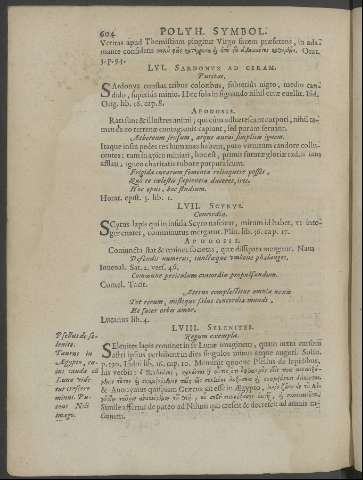 604 POLYH. SYMBOL.
Veritas apud Themistium pingitur Virgo facem præferens, in ada-
mante considens
Orat.
3. p. 54.
LVI. SARDONYX AD CERAM.
Puritas.
SArdonyx constat tribus coloribus, subterius nigro, medio can-
dido, superius minio. Hec sola in signando nihil ceræ evellit. Isid.
Orig. lib. 16. cap. 8.
APODOSIS.
Rari sunt & illustres animi, qui cùm adhærescant corpori, nihil ta-
men de eo terenæ contagionis capiant, sed puram servant
Æthereum sensum, atque auraï simplicis ignem.
Itaque instar pedes res humanas habent, puro virtutum candore collu-
centes: tum in apice miniati, hoc est, primis futuræ gloriæ radiis iam
afflati, igneo charitatis rubore purpurissant.
Frigida curarum fomenta relinquere posses,
Quò te cælestis sapientia duceret, ires.
Hoc opus, hoc studium.
Horat. epist. 3. lib. 1.
LVII. SCYRUS.
Concordia.
SCyrus lapis qui in insula Scyro nascitur, mirum id habet, ut inte-
ger enatet, comminutus mergatur. Plin. lib. 36. cap. 17.
APODOSIS.
Coniuncta stat & eminet societas, quæ dissipata mergitur. Nam
Defendit numerus, iunctæque umbone phalanges.
Iuvenal. Sat. 2. vers. 46.
Commune periculum concordia propulsandum.
Cornel. Tacit.
Æterno complectitur omnia nexu
Tot rerum, mistique salus concordia mundi,
Et sacer orbis amor.
Lucanus lib. 4.
LVIII. SELENITES.
Regum exempla.
Psellus de se-
lenite.
Taurus in
Ægypto, cu-
ius cauda ad
Luna vide-
tur crescere
minui. Pu-
teus Nili
imago.
SElenites lapis continet in se Lunæ imaginem, quam iuxta cursum
astri ipsius perhibent in dies singulos minui atque augeri. Solin.
p. 130. Isidor lib. 16. cap. 10. Meminit quoque Psellus de lapidibus,
his verbis:
& Anonymus quidam Græcus ait esse in Ægypto
Simile affertur de puteo ad Nilum qui crescit & decrescit ad annis in-
crementa.